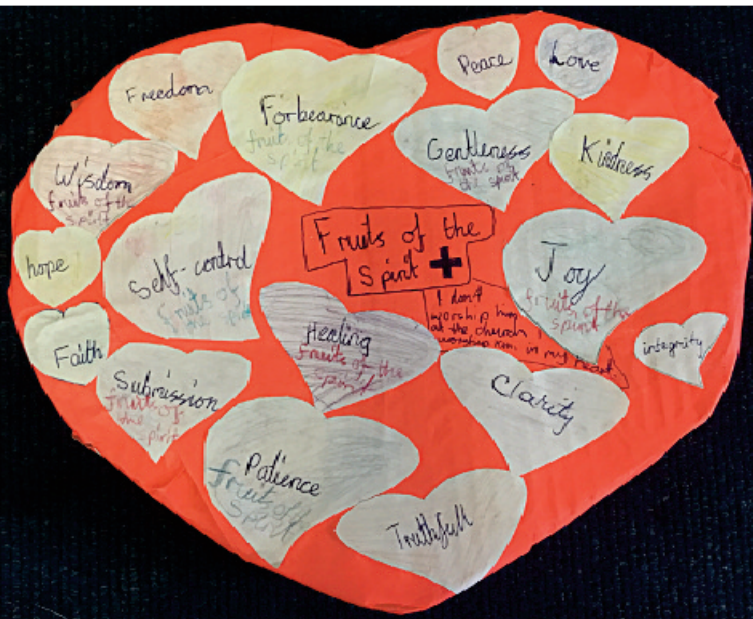 Freedom
Forbearance
fruits of the
spirit
Peace
Love
Gentleness
fruits of
the spirit
Kindness
Wisdom
fruits of the
spirit
hope
Self-control
fruits of
the spirit
Fruits of the
Spirit
Joy
fruits of the
spirit
I don't
worship him
at the church I
worship him in my heart
integrity
Faith
Submission
fruits of
the spirit
Healing
fruits of the
spirit
Clarity
Patience
fruit of
Spirit
Truthfull